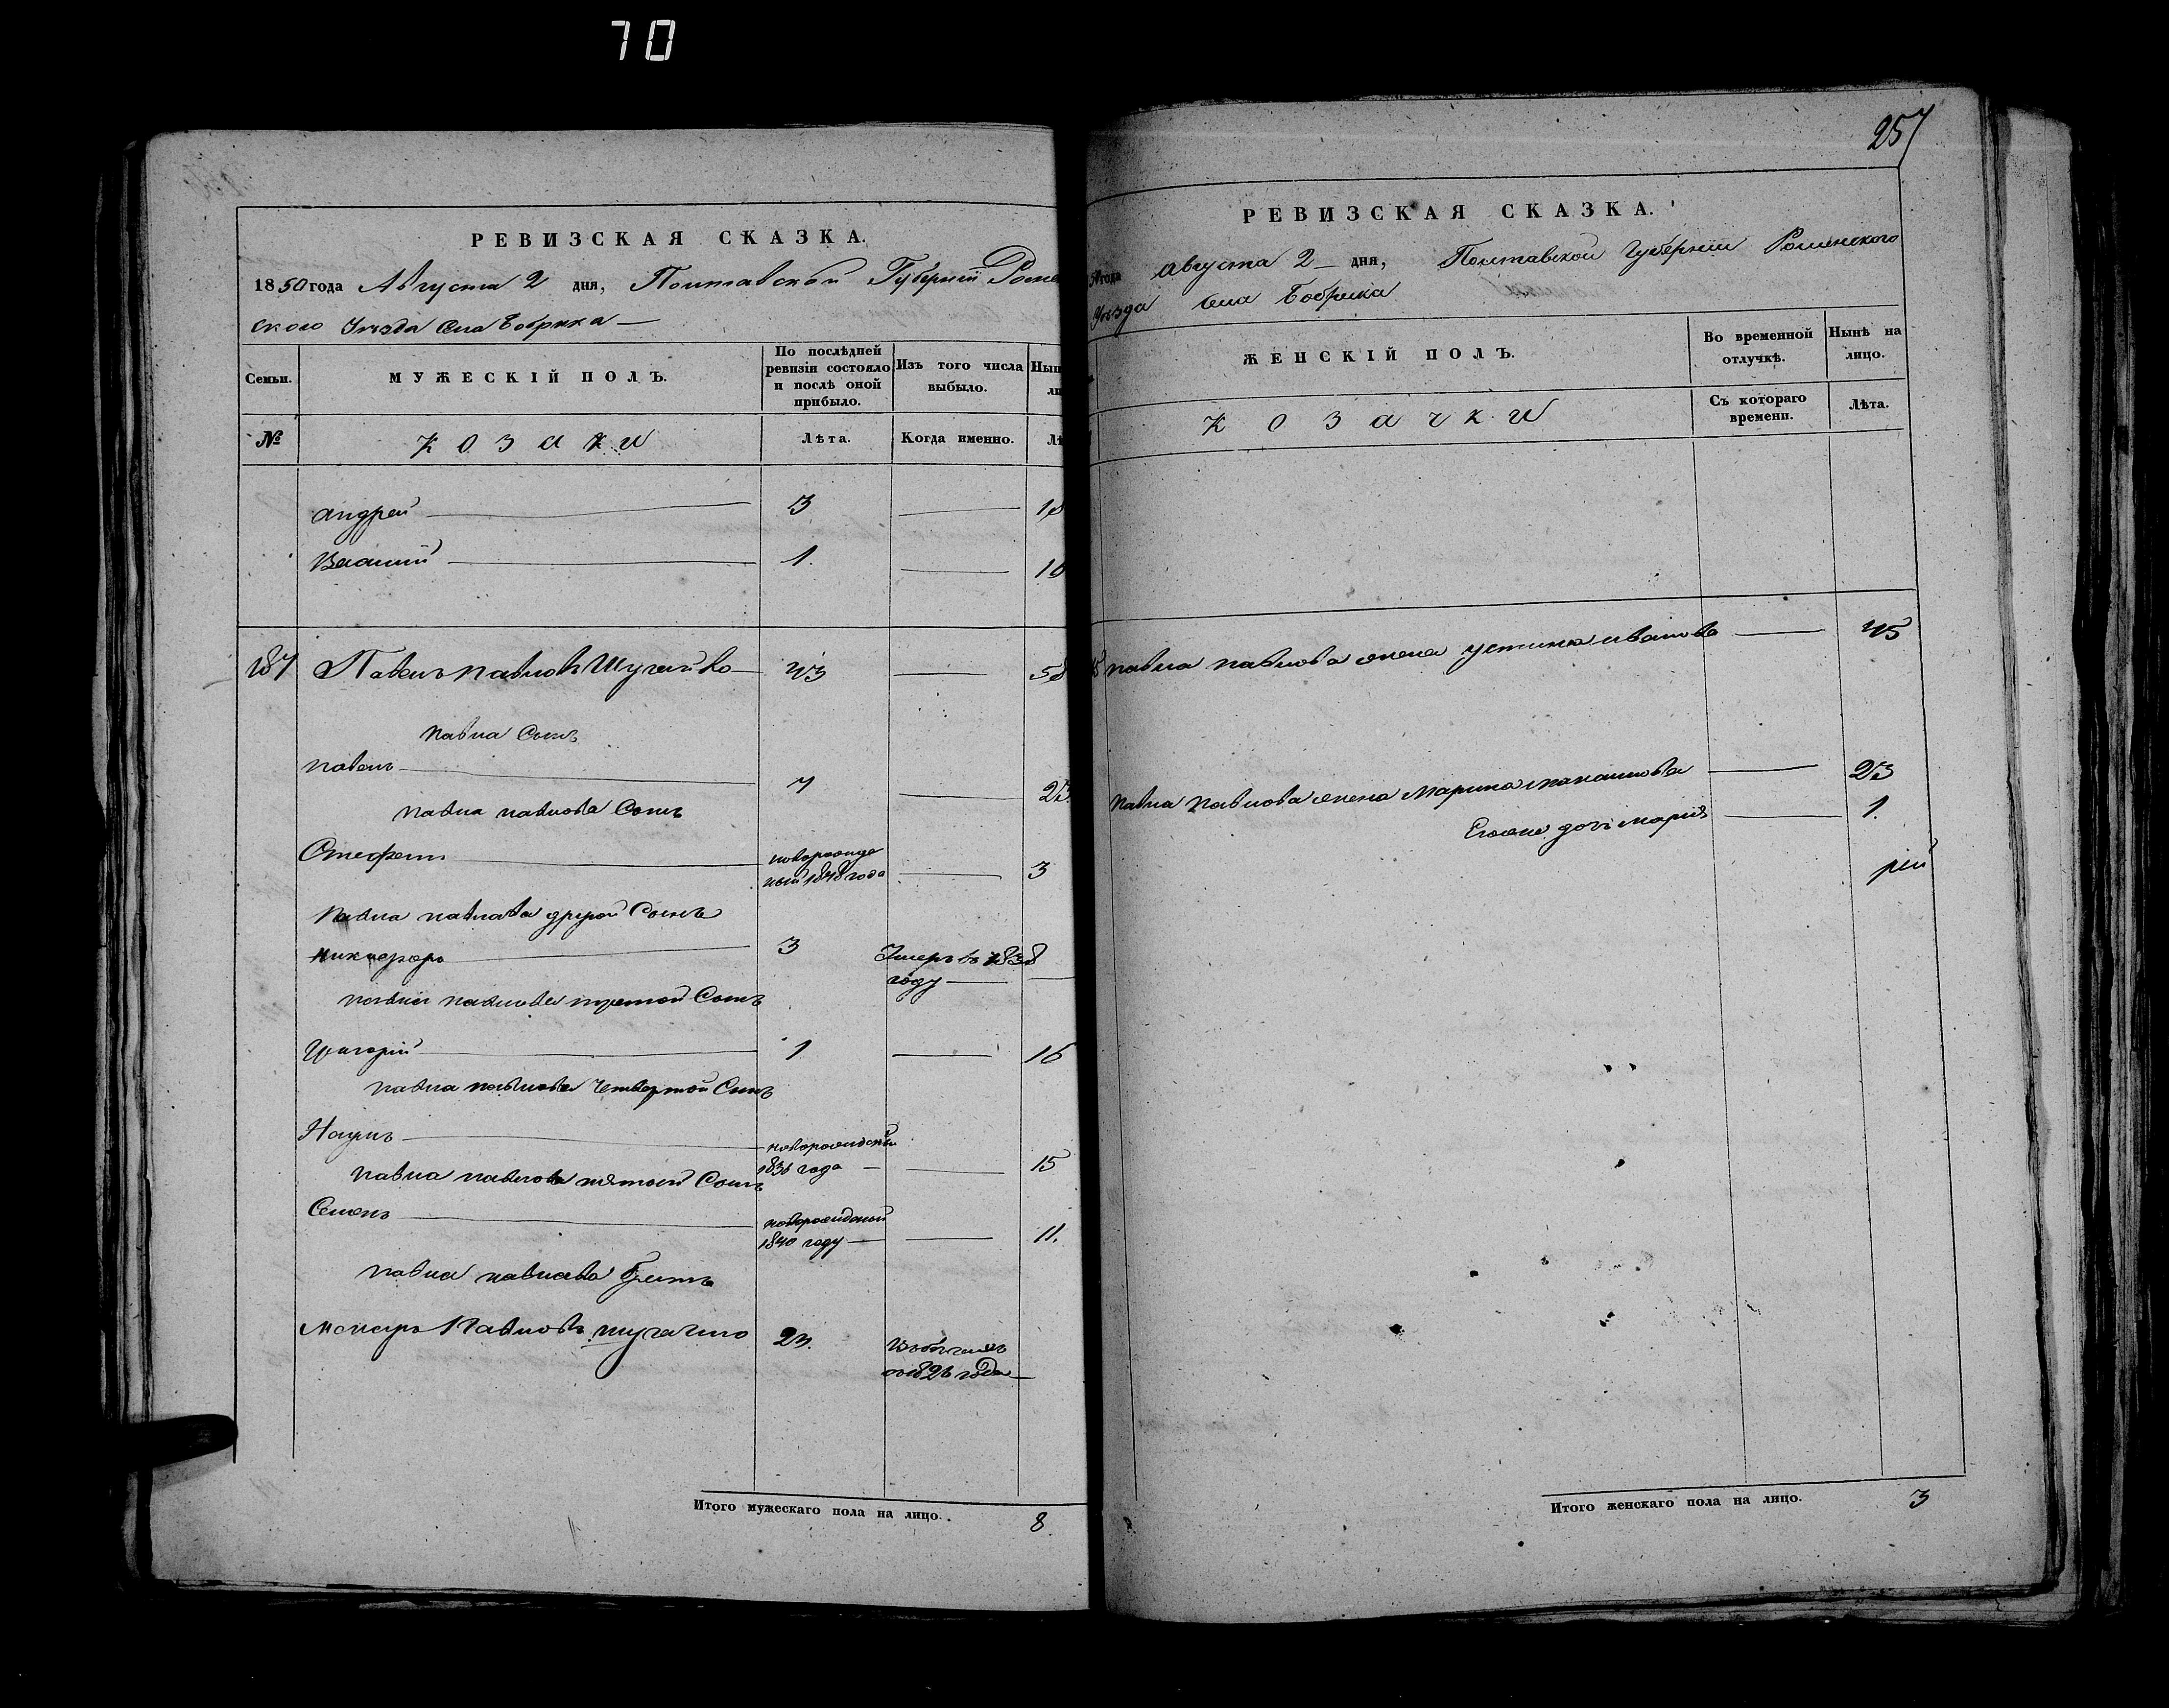 70
РЕВИЗСКАЯ СКАЗКА.
1850 года Августа 2 дня, Полтавской Губерніи Роме
ского Уезда Села Бобрика
Семьи.
МУЖЕСКІЙ ПОЛЪ.
По послѣдней ревизіи состояло и послѣ оной прибыло.
Изъ того числа выбыло.
№
козаки
Лѣта.
Когда именно.
Андрей 3 18
Василий 1. 16
187 Павелъ Павловъ 43 58
Павла Сынъ
Павелъ 7
Павла Павлова Сынъ
Стефанъ новорожде
ный 1848 года 3
Павла Павлова другой Сынъ
Никифоръ 3 Умеръ въ 1838
году
Павла Павлова третой Сынъ
Григорій 1 16
Павла Павлова Четвертой Сынъ
Наумъ новорожденый
1836 года 15
Павла Павлова пятый Сынъ
Семенъ новорожденый
1840 году 11.
Павла Павлова братъ
Павловъ 23.
1826 года
Итого мужескаго пола на лицо. 8
257
РЕВИЗСКАЯ СКАЗКА.
50 года Августа 2 дня, Полтавской Губерніи Роменского
Уѣзда Села Бобрика
ЖЕНСКІЙ ПОЛЪ.
Во временной отлучкѣ.
Нынѣ на лицо.
козачки
Съ котораго времени.
Лѣта.
Павла Павлова жена Устина Иванова 45
Павла Павлова жена Марина 23
дочь Марія 1.
рей
Итого женскаго пола на лицо. 3